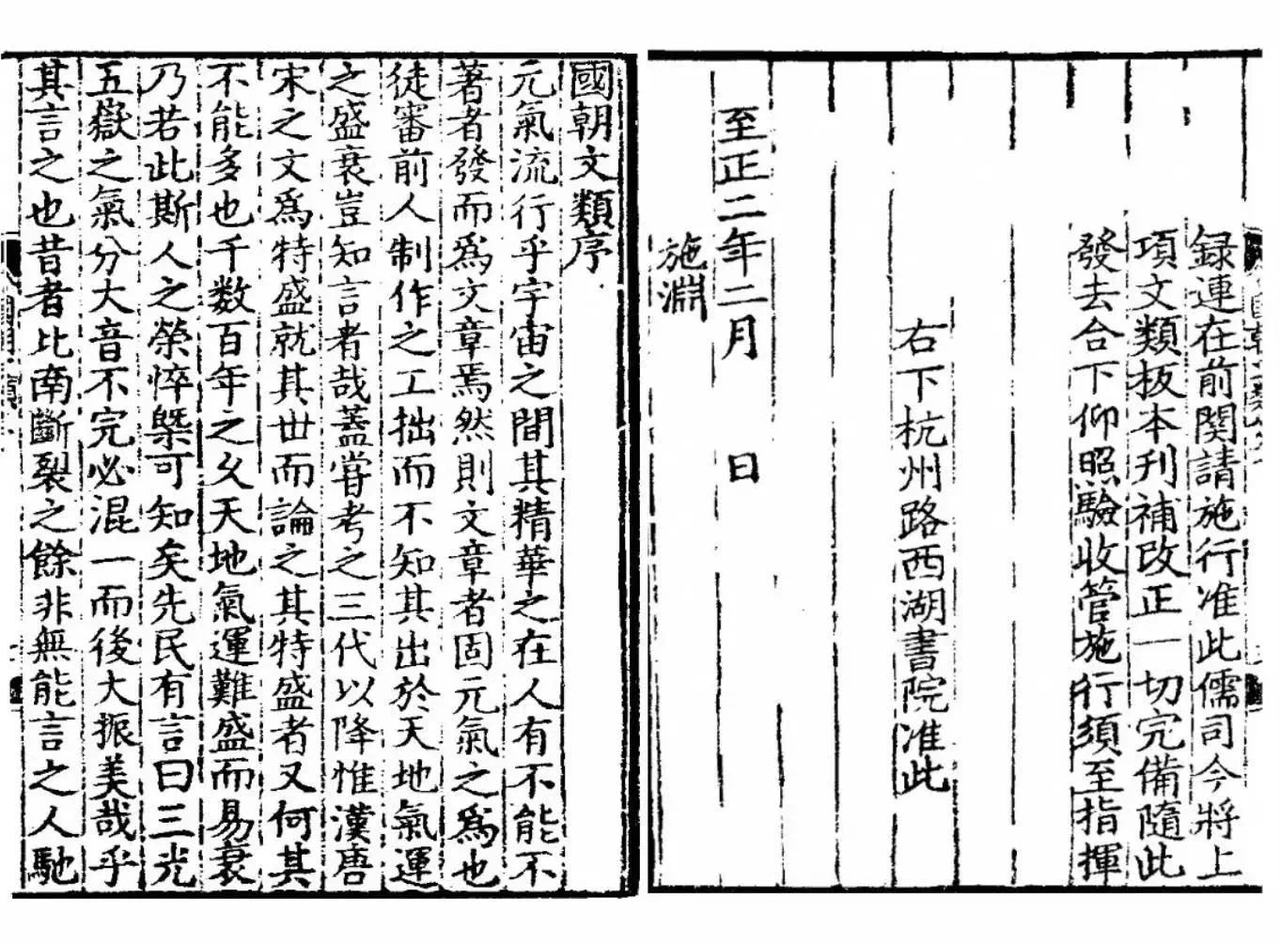 録連在前関請施行准此儒司今將上
項文類板本刊補改正一切完備隨此
發去合下仰照驗收管施行須至指揮
右下杭州路西湖書院准此
至正二年二月　日
施淵
國朝文類序
元氣流行乎宇宙之間其精華之在人有不能不
著者發而爲文章焉然則文章者固元氣之爲也
徒審前人制作之工拙而不知其出於天地氣運
之盛衰豈知言者哉蓋甞考之三代以降惟漢唐
宋之文爲特盛就其世而論之其特盛者又何其
不能多也千数百年之久天地氣運難盛而易衰
乃若此斯人之榮悴槩可知矣先民有言曰三光
五嶽之氣分大音不完必混一而後大振美哉乎
其言之也昔者比南斷裂之餘非無能言之人馳